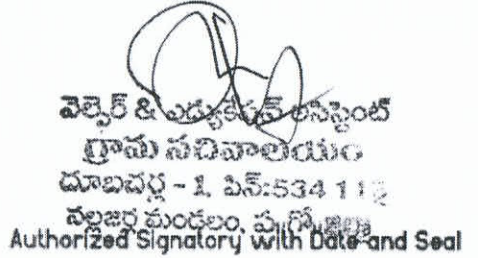 వెల్ఫేర్ & ఎడ్యుకేషన్ అసిస్టెంట్
గ్రామ సచివాలయం
దూబచర్ల - 1. పిన్:534 112
నల్లజర్ల మండలం, ప.గో.జిల్లా
Authorized Signatory with Date and Seal